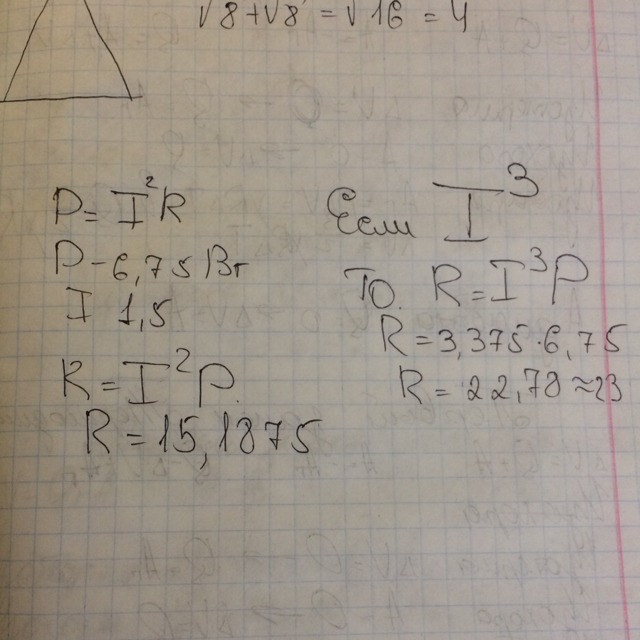 √8+√8 = √16 = 4
P = I²R
P - 6,75 Вт
I 1,5
R = I²P.
R = 15,1875
Если I³
То. R = I³P
R = 3,375·6,75
R = 22,78 ≈ 23